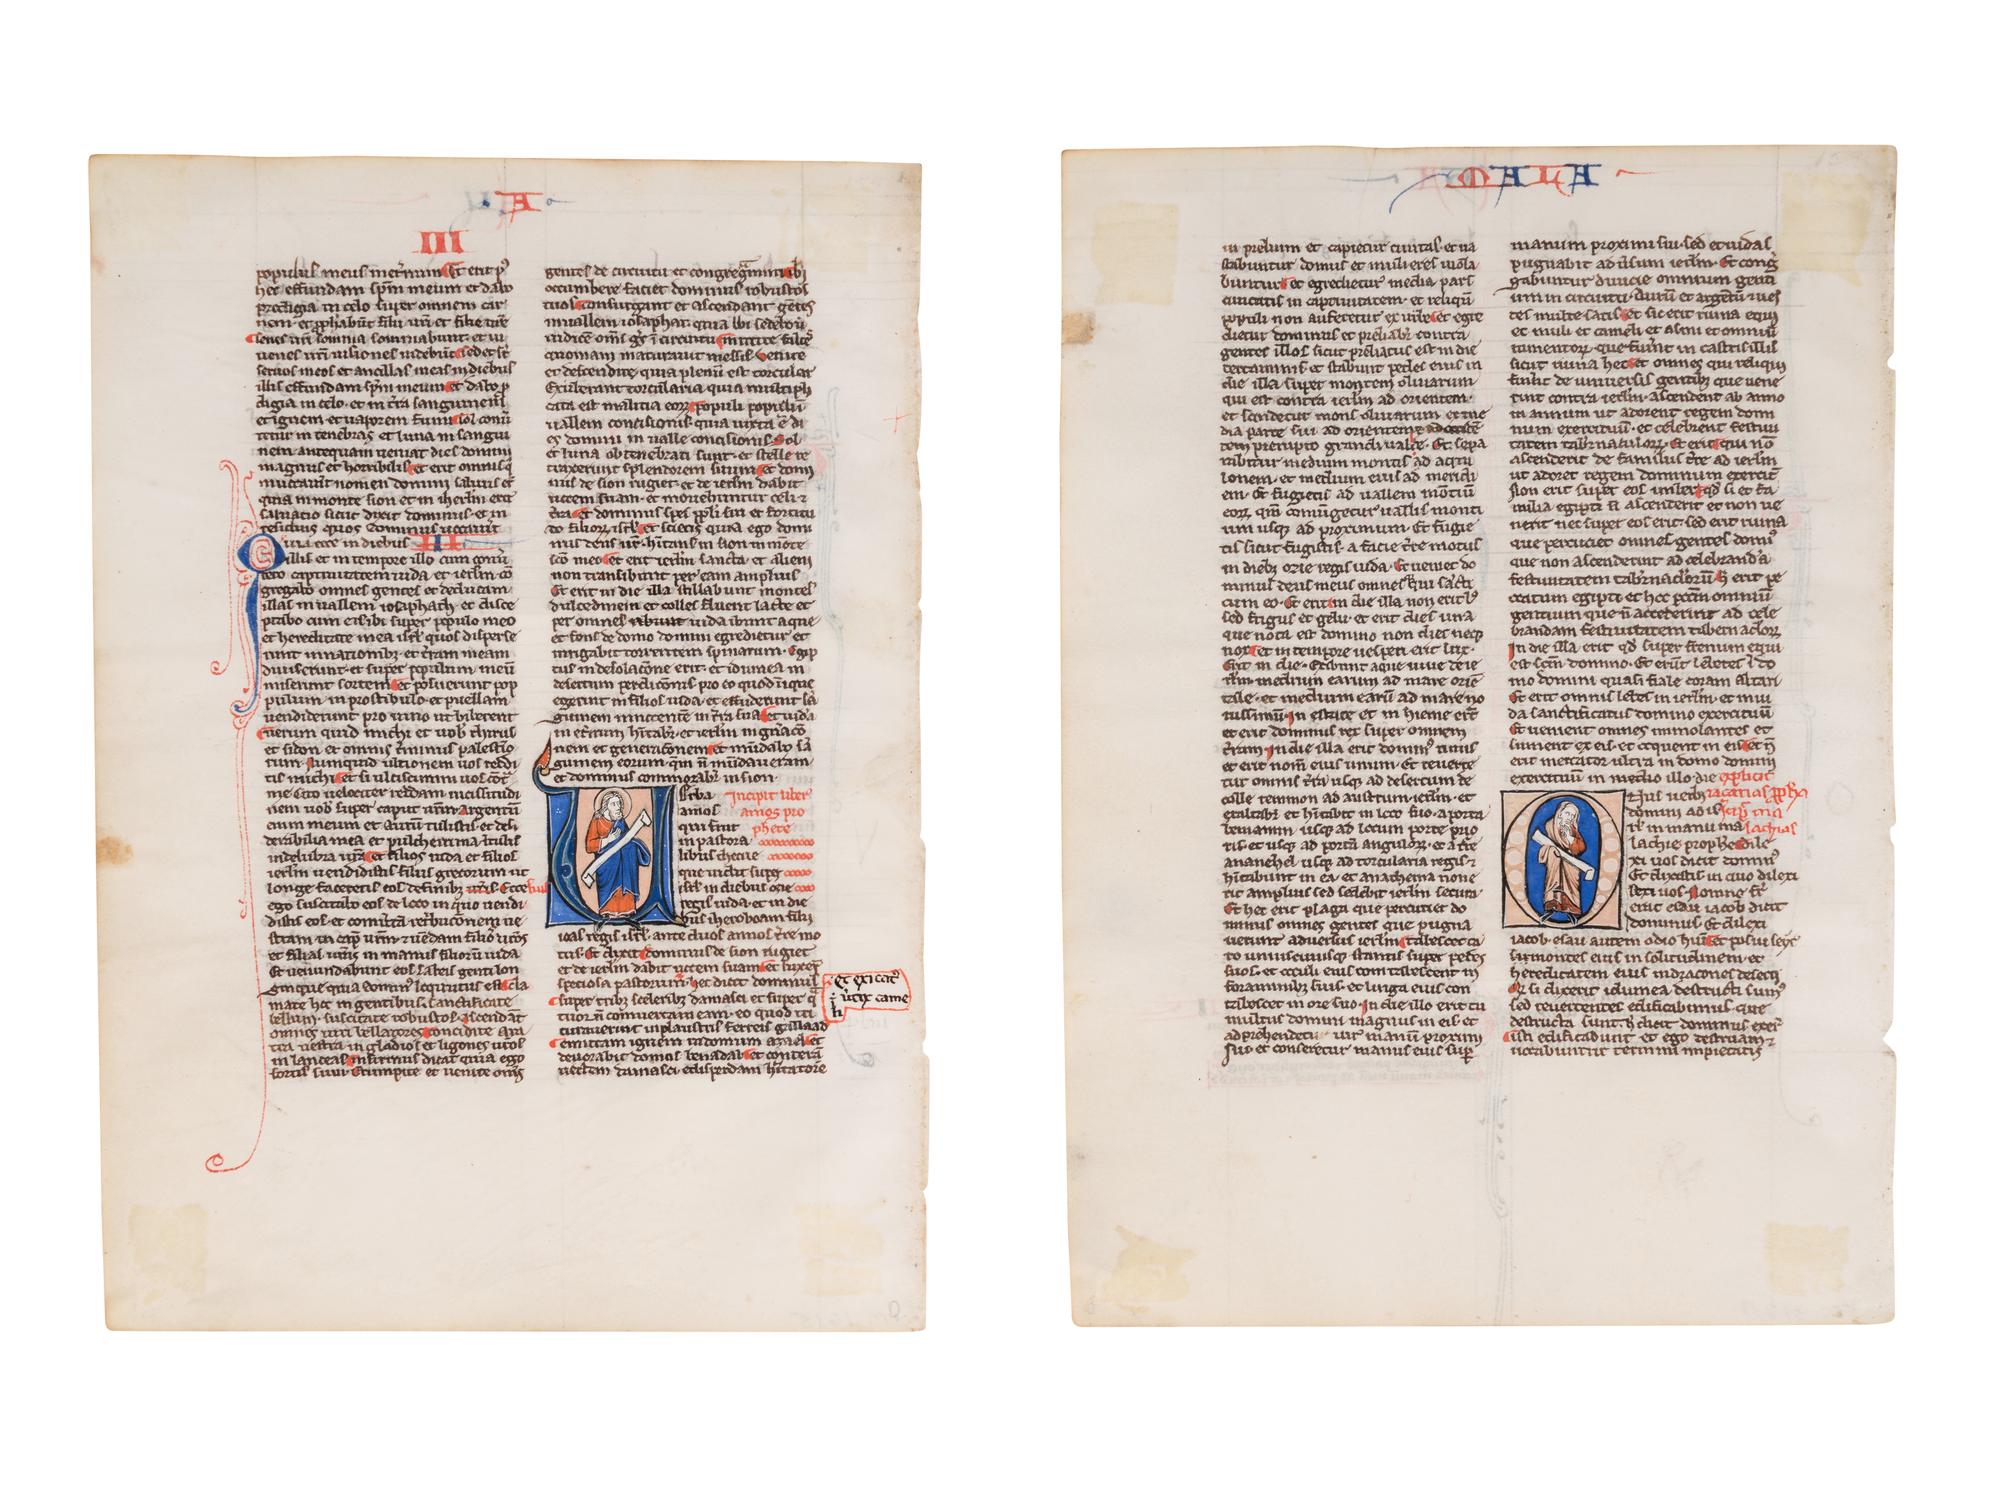 A
III
populus meus in et erit
hec effundam spm meum et dabo
prodigia in celo super omnem car
nem et filii uri et filie
senes uri somnia somniabunt et iu
uenes uri uisiones uidebunt sed et
seruos meos et ancillas meas in diebus
illis effundam spm meum et dabo
digia in celo et in tra sanguinem
et ignem et uaporem fumi sol
tetur in tenebras et luna in sangui
nem antequam ueniat dies domini
magnus et horribilis et erit omnis
inuocauit nomen domini saluus
quia in monte sion et in iherlm erit
saluatio sicut dixit dominus et in
residuis quos dominus uocauit
Quia ecce in diebus III
illis et in tempore illo cum
captiuitatem iuda et ierlm co
gregabo omnes gentes et deducam
illas in uallem iosaphath et disce
ptabo cum eis ibi super populo meo
et hereditate mea isrl quos disperse
runt in nationibz et tram meam
diuiserunt et super populum meum
miserunt sortem et posuerunt pop
pulum in prostibulo et puellam
uendiderunt pro uino ut biberent
uerum quid michi et uobis thirus
et sidon et omnis palestino
rum numquid ultionem uos reddi
tis michi et si ulciscimini uos
me cito uelociter reddam uicissitudi
nem uob super caput urm argentum
enim meum et aurum tulistis et desi
derabilia mea et pulcherrima tulistis
in delubra et filios iuda et filios
ierlm uendidistis filiis grecorum ut
longe faceretis eos de finibz ecce
ego suscitabo eos de loco in quo uendi
distis eos et
in cap urm
et filias uras in manus filiorum iuda
et uenundabunt eos sabeis genti lon
ginque quia locutus est cla
mate hec in gentibus sanctificate
bellum suscitate robustos ascendant
omnes uiri bellatores concidite ara
tra uestra in gladios et ligones uros
in lanceas infirmus dicat quia ego
fortis sum erumpite et uenite oms
gentes de circuitu et congregamini ibi
occumbere faciet dominus robustos
tuos consurgant et ascendant gentes
in uallem iosaphat quia ibi sedebo
iudice oms in circuitu mittite falces
quoniam maturauit messis uenite
et descendite quia plenum est torcular
exuberant torcularia quia multipli
cata est malicia populi populi
uallem concisionis quia iuxta est di
es domini in ualle concisionis sol
et luna obtenebrati sunt et stelle re
traxerunt splendorem suum et domi
nus de sion rugiet et de ierlm dabit
uocem suam et mouebuntur celi
tra et dominus spes ppli sui et fortitu
do filiorum isrl et scietis quia ego domi
nus deus habitans in sion in monte
sco meo et erit ierlm sancta et alieni
non transibunt per eam amplius
Et erit in die illa stillabunt montes
dulcedinem et colles fluent lacte et
per omnes ibunt iuda ibunt aque
et fons de domo domini egredietur et
irrigabit torrentem spinarum egip
tus in desolacone erit et idumea in
desertum perdicionis pro eo quod inique
egerunt in filios iuda et effuderunt sa
guinem innocente in tra sua et iuda
in eternum habitabr et ierlm in
nem et generaconem et mundabo sa
guinem eorum quem non mundaueram
et dominus commorabr in sion
Verba Incipit liber
amos amos pro
qui fuit phete
in pastora
libus thecue
que uidit super
isrl in diebus ozie
regis iuda et in die
bus iheroboam filii
ioas regis isrl ante duos annos terre mo
tus Et dixit dominus de sion rugiet
et de ierlm dabit uocem suam et luxer
speciosa pastorum hec dicit dominus
super tribz sceleribz damasci et super
tuor non conuertam eam eo quod tri
turauerint in plaustris ferreis galaad
emittam ignem in domum azael et
deuorabit domos benadab et conteram
uectem damasci et disperdam habitatore
et exiccat
uertix carme
MALA
in prelium et capietur ciuitas et ua
stabuntur domus et mulieres uiola
buntur et egredietur media pars
ciuitatis in captiuitatem et reliqum
populi non auferetur ex urbe et egre
dietur dominus et preliabr contra
gentes illos sicut preliatus est in die
certaminis et stabunt pedes eius in
die illa super montem oliuarum
qui est contra ierlm ad orientem
et scindetur mons oliuarum ex me
dia parte sui ad orientem
tem prerupto grandi ualde et sepa
rabitur medium montis ad aquilonem
lonem et medium eius ad meridi
em Et fugietis ad uallem montium
eorum quoniam coniungetur uallis monti
um usq ad proximum Et fugie
tis sicut fugistis a facie terre motus
in diebz ozie regis iuda Et ueniet do
minus deus meus omnesq sancti
cum eo Et erit in die illa non erit lux
sed frigus et gelu et erit dies una
que nota est domino non dies neq
nox et in tempore uesperi erit lux
Erit in die Exibunt aque uiue de ie
rlm medium earum ad mare orien
tale et medium earum ad mare no
uissimum in estate et in hieme erit
et erit dominus rex super omnem
terram In die illa erit dominus unus
et erit nomen eius unum Et reuerte
tur omnis terra usq ad desertum de
colle remmon ad austrum ierlm et
exaltabr et habitabit in loco suo a porta
beniamin usq ad locum porte prio
ris et usq ad portam angulorum et a turre
ananehel usq ad torcularia regis
habitabunt in ea et anathema non e
rit amplius sed sedebit ierlm secura
Et hec erit plaga qua percutiet do
minus omnes gentes que pugna
uerunt aduersus ierlm tabescet ca
ro uniuscuiusq stantis super pedes
suos et oculi eius contabescent in
foraminibz suis et lingua eius con
tabescet in ore suo In die illo erit tu
multus domini magnus in eis et
adprehendet uir manum proximi
sui et conseretur manus eius super
manum proximi sui sed et iudas
pugnabit aduersum ierlm Et congre
gabuntur diuicie omnium genti
um in circuitu aurum et argentum ues
tes multe satis et sic erit ruina equi
et muli et cameli et asini et omnium
iumentorum que fuerint in castris illis
sicut ruina hec et omnes qui reliqui
fuerint de uniuersis gentibz que uene
runt contra ierlm ascendent ab anno
in annum ut adorent regem domi
num exercituum et celebrent festiui
tatem tabrnaculorum Et erit qui non
ascenderit de familiis terre ad ierlm
ut adoret regem dominum exercituum
non erit super eos imber qd si et fa
milia egipti non ascenderit et non ue
nerit nec super eos erit sed erit ruina
qua percuciet omnes gentes dominus
que non ascenderint ad celebranda
festiuitatem tabrnaclorum hec erit pe
ccatum egipti et hec peccatum omnium
gentium que non accesserint ad cele
brandam festiuitatem tabernaclorum
In die illa erit qd super frenum equi
est scm domino Et erunt lebetes in do
mo domini quasi fiale coram altari
Et erit omnis lebes in ierlm et in iu
da sanctificatus domino exercituum
Et uenient omnes immolantes et
sument ex eis et coquent in eis et non
erit mercator ultra in domo domini
exercituum in medio illo die explicit
Onus uerbi zacarias ppha
domini ad is incipit ma
rl in manu ma lachias
lachie prophe dile
xi uos dicit dominus
Et dixistis in quo dilexi
sti nos Nonne frater
erat esau iacob dicit
dominus Et dilexi
iacob esau autem odio habui et posui seyr
in montes eius in solitudinem et
hereditatem eius in dracones deserti
Qd si dixerit idumea destructi sumus
sed reuertentes edificabimus que
destructa sunt hec dicit dominus exer
isti edificabunt et ego destruam
uocabuntur termini impietatis